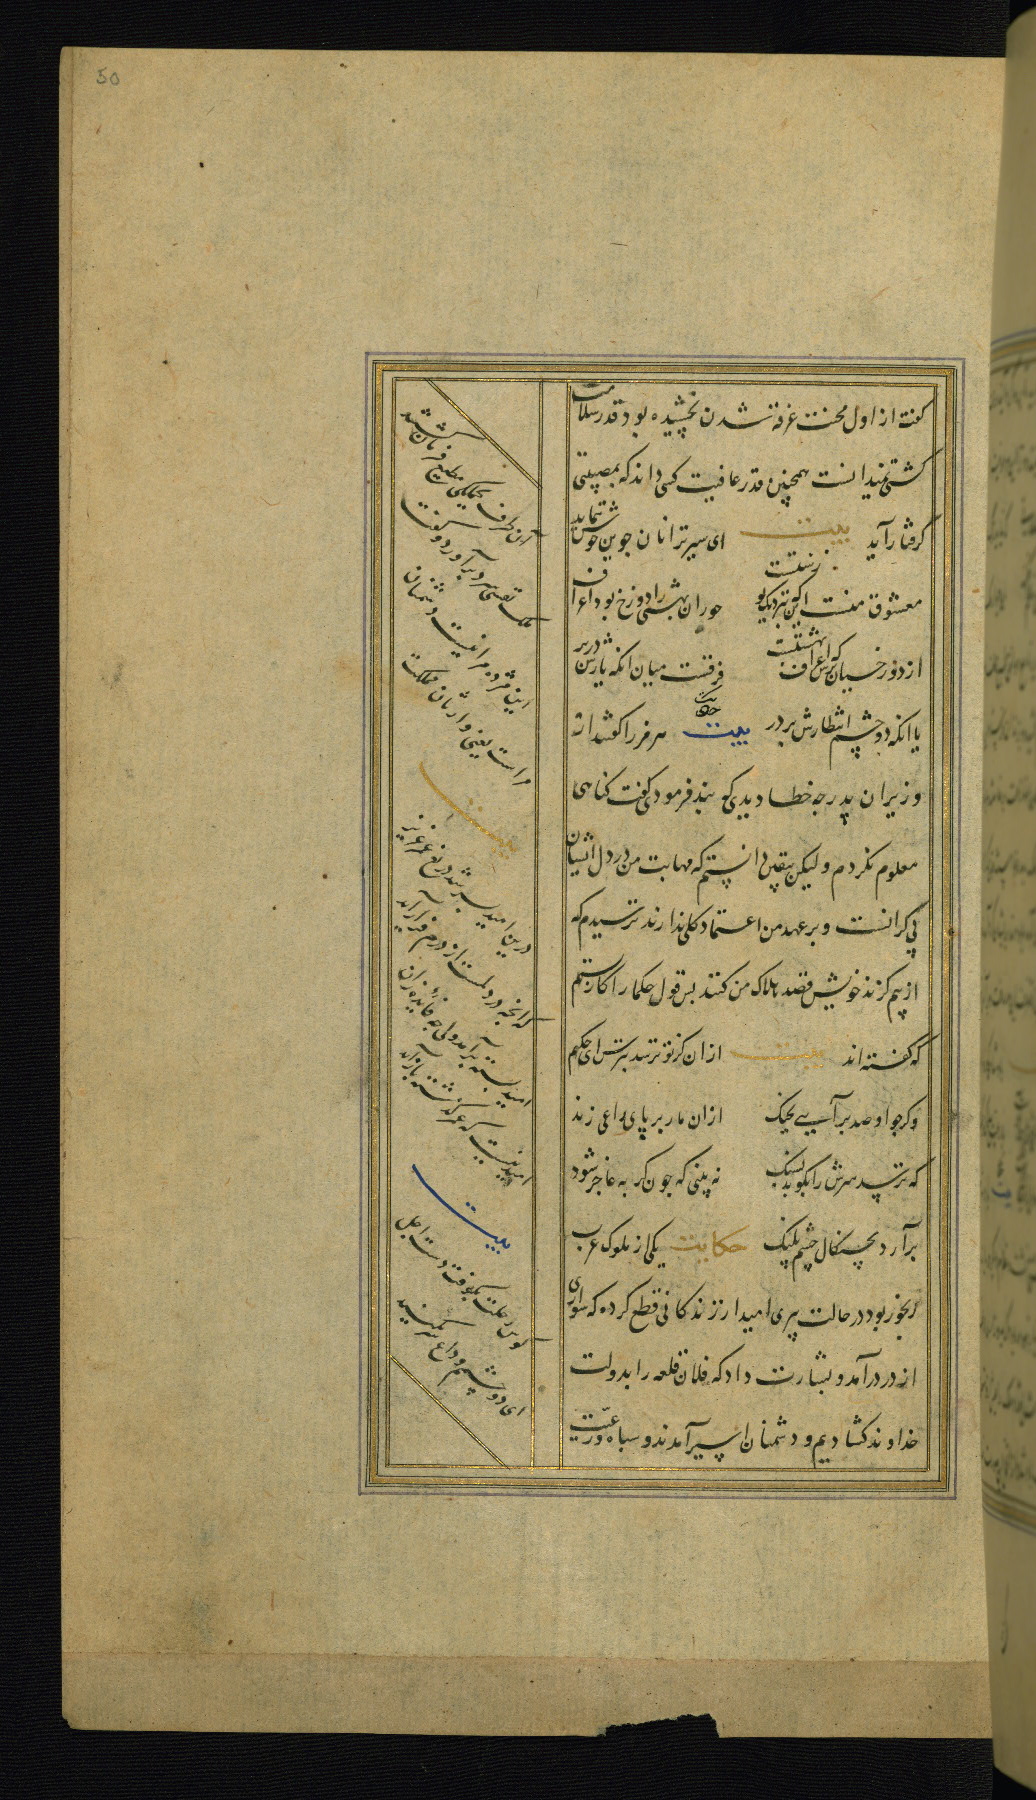 50
کفت از اول محنت غرقه شدن نچشیده بود قدر سلامت
کشتی نمیدانست همچنین قدر عافیت کسی داند که بمصیبتی
کرفتار آید بیت ای سیر ترا نان جوین خوش ننماید
معشوق منست انکه بنزدیک تو زشتست حوران بهشتی را دوزخ بود اعراف
از دوزخیان پرس که اعراف بهشتست فرقست میان انکه یارش در بر
یا انکه دو چشم انتظارش بر در حکایت بیت هرمز را کفتند از
وزیران پدر چه خطا دیدی که بند فرمودی کفت کناهی
معلوم نکردم ولیکن بیقین دانستم که مهابت من در دل ایشان
بی کرانست و بر عهد من اعتماد کلی ندارند ترسیدم که
از بیم کزند خویش قصد هلاک من کنند پس قول حکما را کار بستم
که کفته اند بیت ازان کز تو ترسد بترس ای حکیم
وکر با چو او صد برآیی بجنک ازان مار بر پای راعی زند
که ترسد سرش را بکوبد بسنک نه بینی که چون کربه عاجز شود
برآرد بچنکال چشم پلنک حکایت یکی از ملوک عرب
رنجور بود در حالت پیری امید از زندکانی قطع کرده که سواری
از در درآمد و بشارت داد که فلان قلعه را بدولت
خداوند کشادیم و دشمنان اسیر آمدند و سپاه و رعیت
آن طرف بجملکی مطیع فرمان کشتند
ملک نفسی سرد برآورد و کفت
این مژده مرا نیست دشمنان
مراست یعنی وارثان مملکت
بیت
درین امید بسر شد دریغ عمر عزیز
که انچه در دلست از درم فراز آید
امید بسته برآمد ولی چه فایده زان
امید نیست که عمر کذشته باز آید
بیت
کوس رحلت بکوفت دست اجل
ای دو چشم وداع سر بکنید